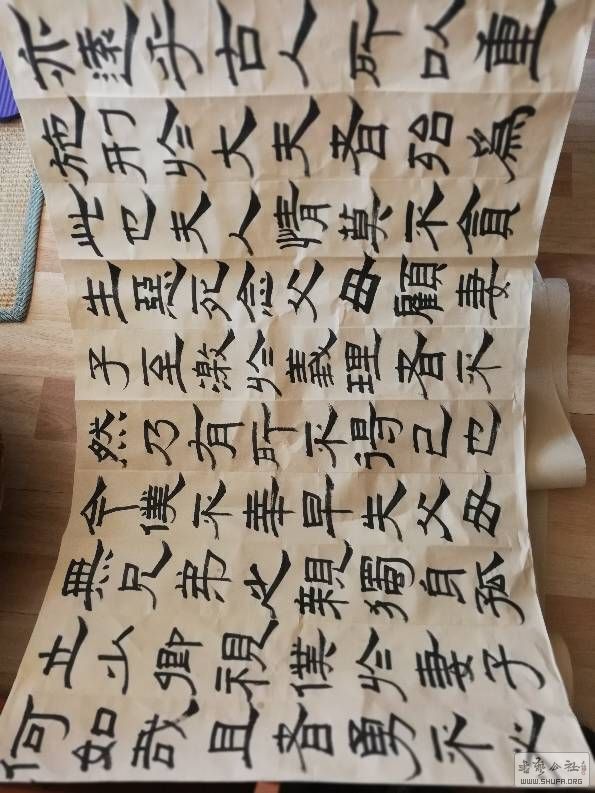 亦遠乎古人所以重
施刑於大夫者殆為
此也夫人情莫不貪
生惡死念父母顧妻
子至激於義理者不
然乃有所不得已也
今僕不幸早失父母
無兄弟之親獨身孤
立少卿視僕於妻子
何如哉且者勇不必
书艺公社
WWW.SHUFA.ORG